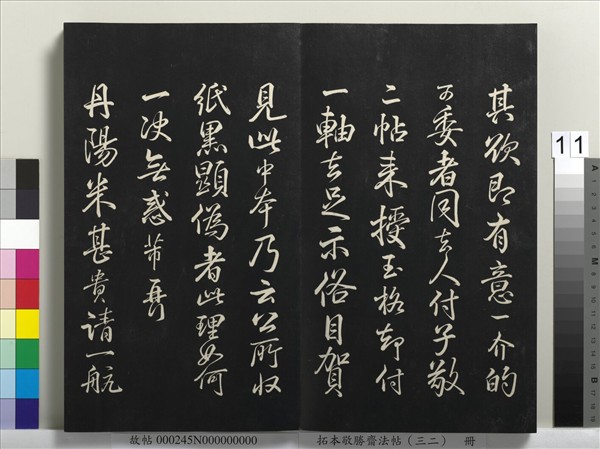 其欲即有意一介的
可委者同去人付子敬
二帖来授玉格却付
一軸去足示俗目賀
見此中本乃云公所收
紙黑顯偽者此理如何
一決無惑芾再
丹陽米甚貴請一航
11
故帖 000245N000000000
拓本敬勝齋法帖（三二） 冊